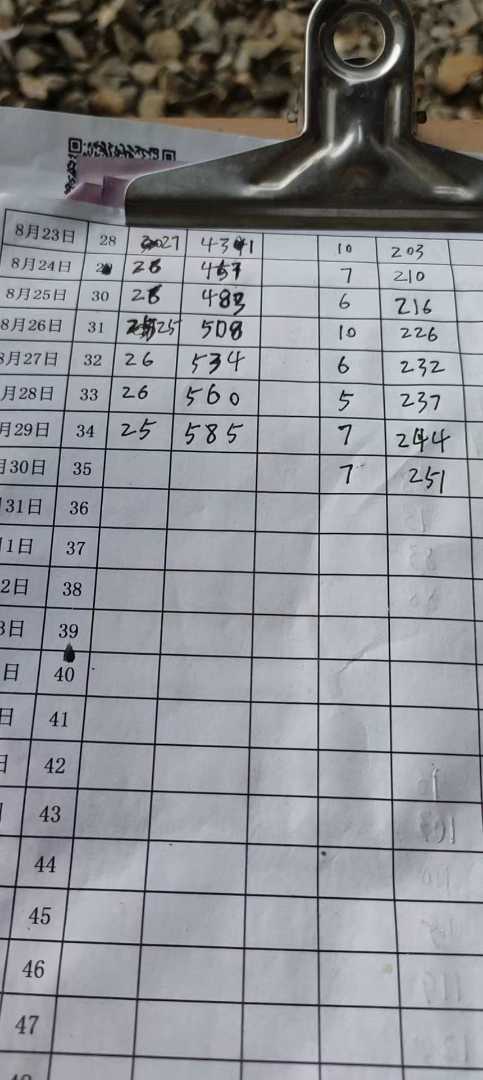 8月23日 28 27 431 10 203
8月24日 26 457 7 210
8月25日 30 26 483 6 216
8月26日 31 25 508 10 226
8月27日 32 26 534 6 232
月28日 33 26 560 5 237
月29日 34 25 585 7 244
月30日 35 7 251
31日 36
1日 37
2日 38
3日 39
日 40
日 41
日 42
43
44
45
46
47